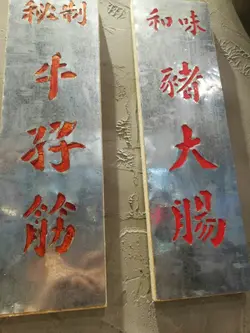 秘制
牛孖筋
和味
豬大腸